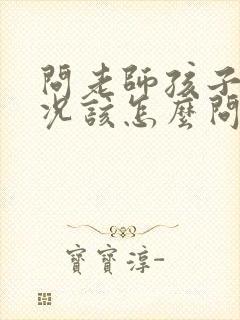 問老師孩子
況該怎麼問
寶寶淳-